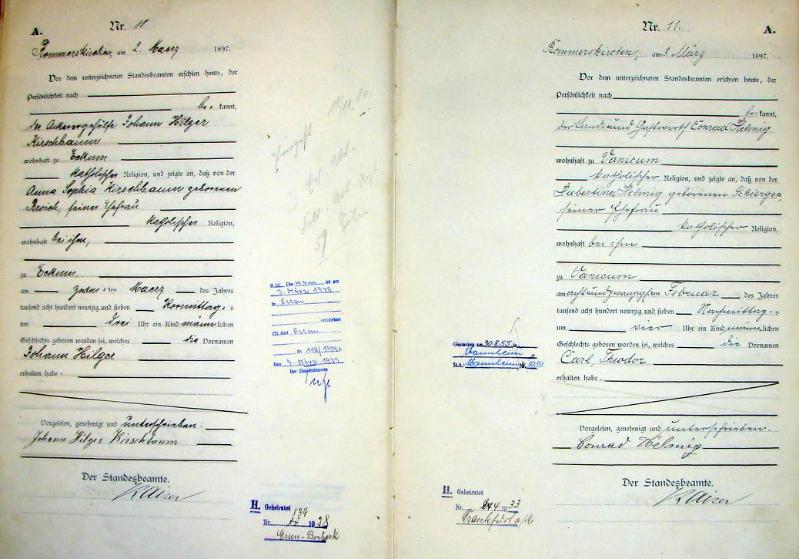 A.
Nr. 10
Rommerskirchen, am 2. Maerz 1897.
Vor dem unterzeichneten Standesbeamten erschien heute, der
Persönlichkeit nach
be= kannt,
der Ackergehülfe Johann Hilger
Kirschbaum
wohnhaft zu Eckum
katholischer Religion, und zeigte an, daß von der
Anna Sophia Kirschbaum geborenen
seiner Ehefrau
katholischer Religion,
wohnhaft bei ihm,
zu Eckum
am zweiten Maerz des Jahres
tausend acht hundert neunzig und sieben Vormittags
um drei Uhr ein Kind männlichen
Geschlechts geboren worden sei, welches die Vornamen
Johann Hilger
erhalten habe.
Vorgelesen, genehmigt und unterschrieben:
Johann Hilger Kirschbaum
Der Standesbeamte.
Kaiser
3. März 1974
in Essen
verstorben
Essen
Der Standesbeamte
H. Geheiratet
Nr. 134 1928
Essen-Borbeck
Nr. 11.
A.
Rommerskirchen, am 2. März 1897.
Vor dem unterzeichneten Standesbeamten erschien heute, der
Persönlichkeit nach
be= kannt,
der und Gastwirth Conrad Helmig
wohnhaft zu Vanicum
katholischer Religion, und zeigte an, daß von der
Hubertina Helmig geborenen
seiner Ehefrau
katholischer Religion,
wohnhaft bei ihm
zu Vanicum
am achtundzwanzigsten Februar des Jahres
tausend acht hundert neunzig und sieben Nachmittags
um vier Uhr ein Kind männlichen
Geschlechts geboren worden sei, welches die Vornamen
Carl Theodor
erhalten habe.
Vorgelesen, genehmigt und unterschrieben.
Conrad Helmig
Der Standesbeamte.
Kaiser
Gestorben am 30.8.55 in
Mannheim
St.A. Mannheim
H. Geheiratet
Nr. 1933
Frankfurt a/M